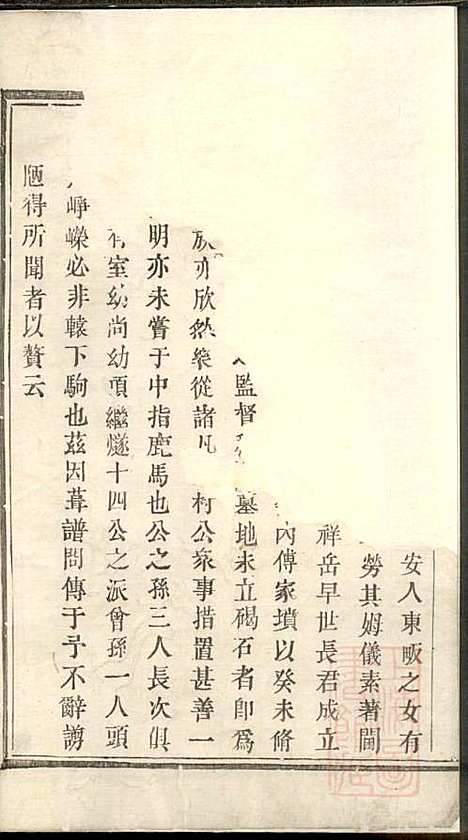 安人東畈之女有
勞其姆儀素著閫
祥岳早世長君成立
內傳家墳以癸未脩
監督 墓地未立碣石者卽爲
族亦欣然樂從諸凡 村公衆事措置甚善一
明亦未嘗于中指鹿馬也公之孫三人長次俱
有室幼尚幼項繼燧十四公之派曾孫一人頭
崢嶸必非轅下駒也茲因葺譜問傳于予不辭謭
陋得所聞者以贅云